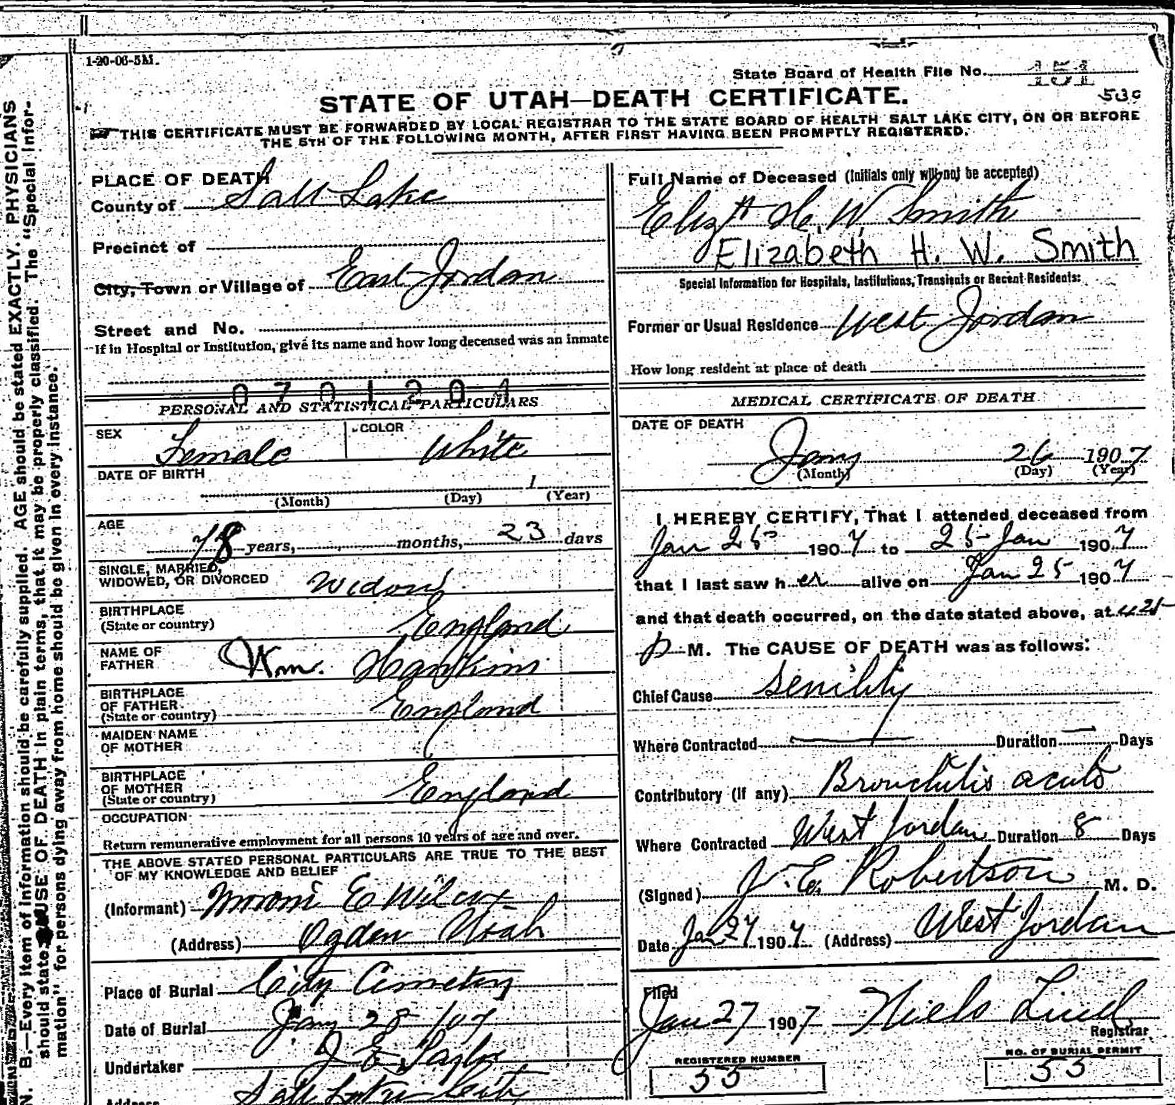 1-20-06-5M.
State Board of Health File No. 151
530
STATE OF UTAH—DEATH CERTIFICATE.
THIS CERTIFICATE MUST BE FORWARDED BY LOCAL REGISTRAR TO THE STATE BOARD OF HEALTH SALT LAKE CITY, ON OR BEFORE
THE 5TH OF THE FOLLOWING MONTH, AFTER FIRST HAVING BEEN PROMPTLY REGISTERED.
PLACE OF DEATH
County of Salt Lake
Precinct of
City, Town or Village of East Jordan
Street and No.
If in Hospital or Institution, give its name and how long deceased was an inmate
0701204
Full Name of Deceased (Initials only will not be accepted)
Elizth H. W. Smith
Elizabeth H. W. Smith
Special Information for Hospitals, Institutions, Transients or Recent Residents:
Former or Usual Residence West Jordan
How long resident at place of death
PERSONAL AND STATISTICAL PARTICULARS
SEX Female COLOR White
DATE OF BIRTH 1
(Month) (Day) (Year)
AGE
78 years, months, 23 days
SINGLE, MARRIED,
WIDOWED, OR DIVORCED Widow
BIRTHPLACE
(State or country) England
NAME OF
FATHER Wm. Hawkins
BIRTHPLACE
OF FATHER
(State or country) England
MAIDEN NAME
OF MOTHER
BIRTHPLACE
OF MOTHER
(State or country) England
OCCUPATION
Return remunerative employment for all persons 10 years of age and over.
THE ABOVE STATED PERSONAL PARTICULARS ARE TRUE TO THE BEST
OF MY KNOWLEDGE AND BELIEF
(Informant) Moroni E Wilcox
(Address) Ogden Utah
Place of Burial City Cemetery
Date of Burial Jany 28 /07
Undertaker J E Taylor
Address Salt Lake City
MEDICAL CERTIFICATE OF DEATH
DATE OF DEATH
Jany 26 1907
(Month) (Day) (Year)
I HEREBY CERTIFY, That I attended deceased from
Jan 25 1907 to 25 Jan 1907
that I last saw her alive on Jan 25 1907
and that death occurred, on the date stated above, at 4 25
p M. The CAUSE OF DEATH was as follows:
Chief Cause Senility
Where Contracted — Duration — Days
Contributory (if any) Bronchitis acute
Where Contracted West Jordan Duration 8 Days
(Signed) Robertson M. D.
Date Jan 27 1907 (Address) West Jordan
Filed
Jan 27 1907 Niels Lind
Registrar
REGISTERED NUMBER
55
NO. OF BURIAL PERMIT
55
N. B.—Every item of information should be carefully supplied. AGE should be stated EXACTLY. PHYSICIANS
should state CAUSE OF DEATH in plain terms, that it may be properly classified. The "Special Infor-
mation" for persons dying away from home should be given in every instance.